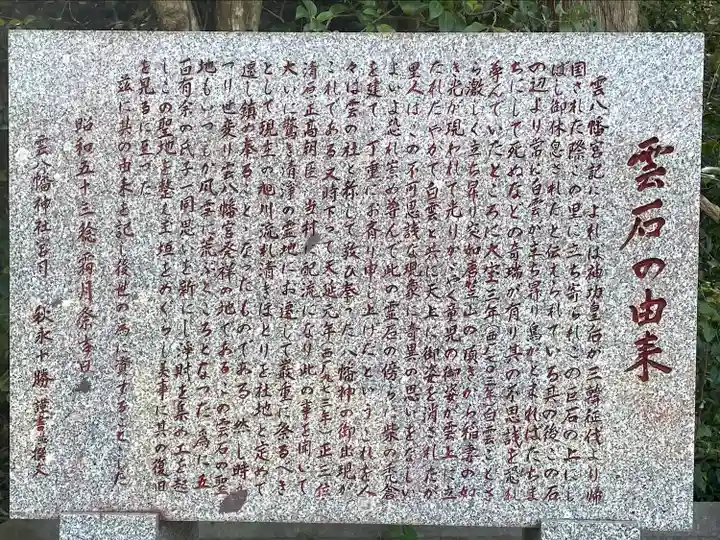 雲石の由来
雲八幡宮記によれば神功皇后が三韓征伐より帰
国された際この里に立ち寄られこの巨石の上にし
ばし御休息されたと伝えられている其の後この石
の辺より常に白雲が立ち昇り鳥がとまればたちま
ちにして死ぬなどの奇瑞が有り其の不思議を恐れ
尊んでいたところに大宝三年(西七〇三年)白雲ことさ
ら激しく立ち昇り突如唐笠山の頂きから稲妻の如
き光が現われて光りかゞやく童児の御姿が雲上に立
たれたやがて白雲と共に天上に御姿を消されたが
里人はこの不可思議な現象に奇異の思いをなしい
よいよ恐れ崇め尊んで此の霊石の傍らに柴の宝倉
を建て丁重にお斉り申し上げたというこれを人
々は雲の社と称して敬い奉った八幡神の御出現が
これである又時下って天延元年(西九七三年)正三位
清原正高朝臣当村に配流になり此の事を聞いて
大いに驚き清浄の霊地にお遷して厳重に祭るべき
として現在の旭川流れ清きほとりを社地と定めて
遷し鎮め奉ることになったものである然し時
うつり世変り雲八幡宮発祥の地であるこの雲石の聖
地もいつしか風雪に荒ぶところとなった為に五
百有余の氏子一同思いを新にし浄財を集め工を起
しこの聖地を整え玉垣をめぐらし美事に其の復旧
を見るに至った
茲に其の由来を記し後世の為に資することとした
昭和五十三稔霜月祭吉日
雲八幡神社宮司 秋永十勝 謹書並撰文